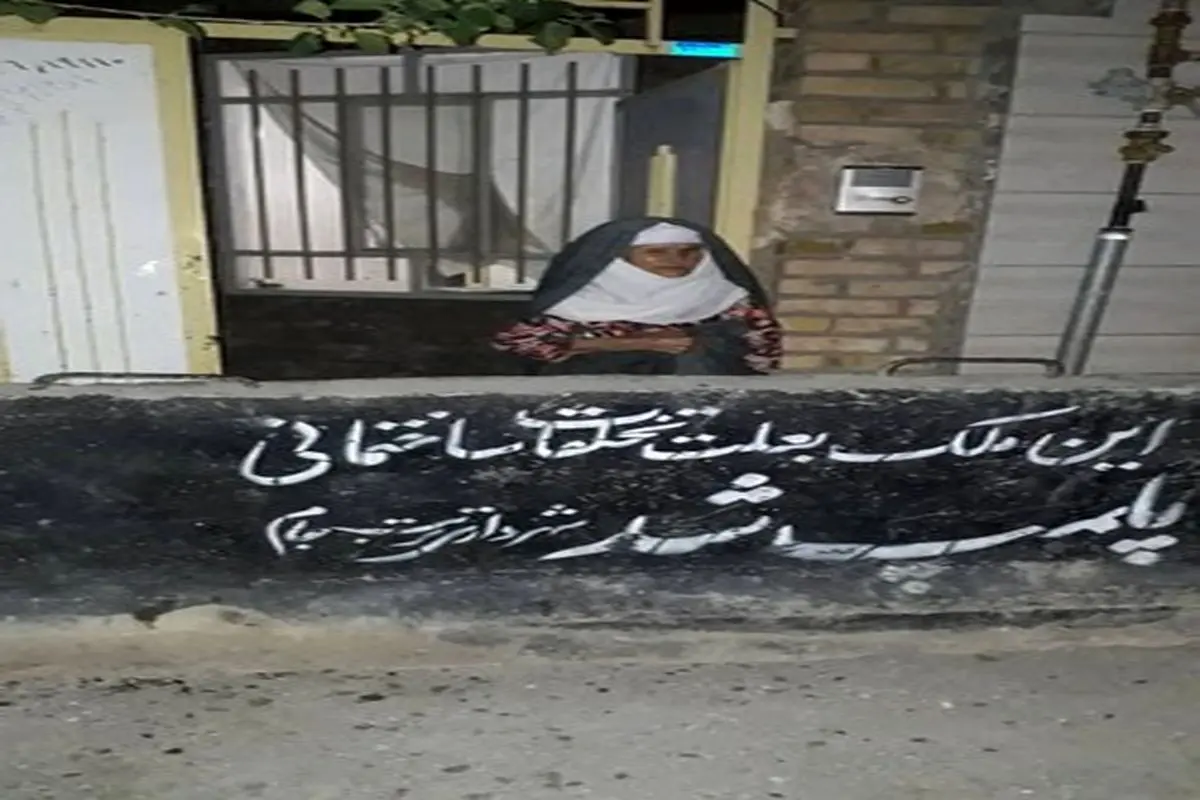 این ملک بعلت تخلفات ساختمانی
پلمب شد شهرداری تربت جام